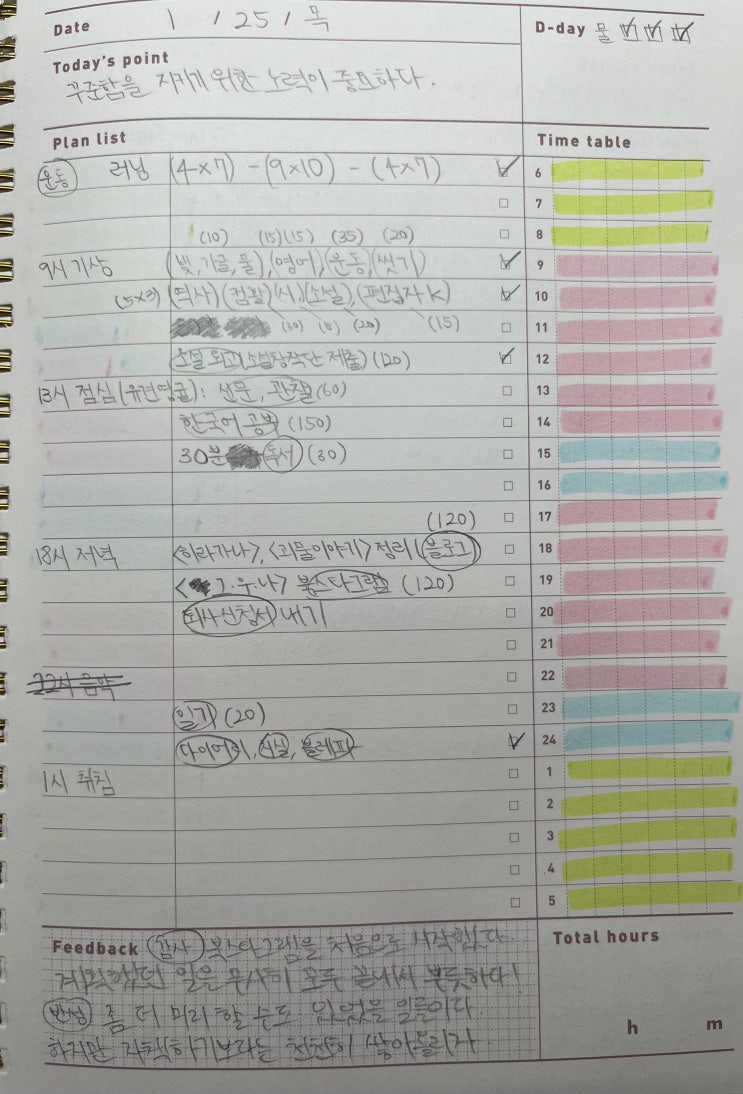 Date 1 / 25 / 목
D-day 물
Today's point
꾸준함을 지키기 위한 노력이 중요하다.
Plan list
Time table
운동 러닝 (4×7) - (9×10) - (4×7)
6
7
(10) (15)(15) (35) (20)
8
9시 기상 (빛, 가글, 물), (영어), (운동), (씻기)
9
(5×3) (역사) (컴활) (시), (소설), (편집자 K)
10
(30) (20) (15)
11
소설 퇴고 (소설창작단 제출) (120)
12
13시 점심 (유건영균): 신문, 관찰 (60)
13
한국어 공부 (150)
14
30분 독서 (30)
15
16
(120)
17
18시 저녁 <히라가나>, <괴물이야기> 정리 (블로그)
18
북스타그램 (120)
19
퇴사신청서 내기
20
21
22시 음악
22
일기 (20)
23
다이어리,
24
1시 취침
1
2
3
4
5
Feedback 감사 북스타그램을 처음으로 시작했다.
계획했던 일을 무사히 모두 끝내서 뿌듯하다!
반성 좀 더 미리 할 수도 있었을 일들이다.
하지만 자책하기보다는 천천히 쌓아올리자
Total hours
h m